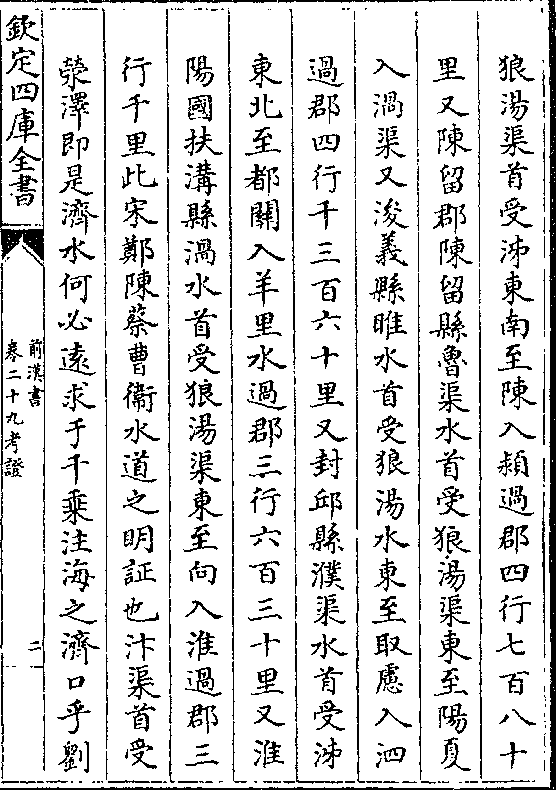 狼湯渠首受泲東南至陳入潁過郡四行七百八十
里又陳留郡陳留縣魯渠水首受狼湯渠東至陽夏
入渦渠又浚義縣睢水首受狼湯水東至取慮入泗
過郡四行千三百六十里又封邱縣濮渠水首受泲
東北至都關入羊里水過郡三行六百三十里又淮
陽國扶溝縣渦水首受狼湯渠東至向入淮過郡三
行千里此宋鄭陳蔡曹衞水道之明証也汴渠首受
滎澤即是濟水何必遠求于千乘注海之濟口乎劉
欽定四庫全書
前漢書
卷二十九考證
二